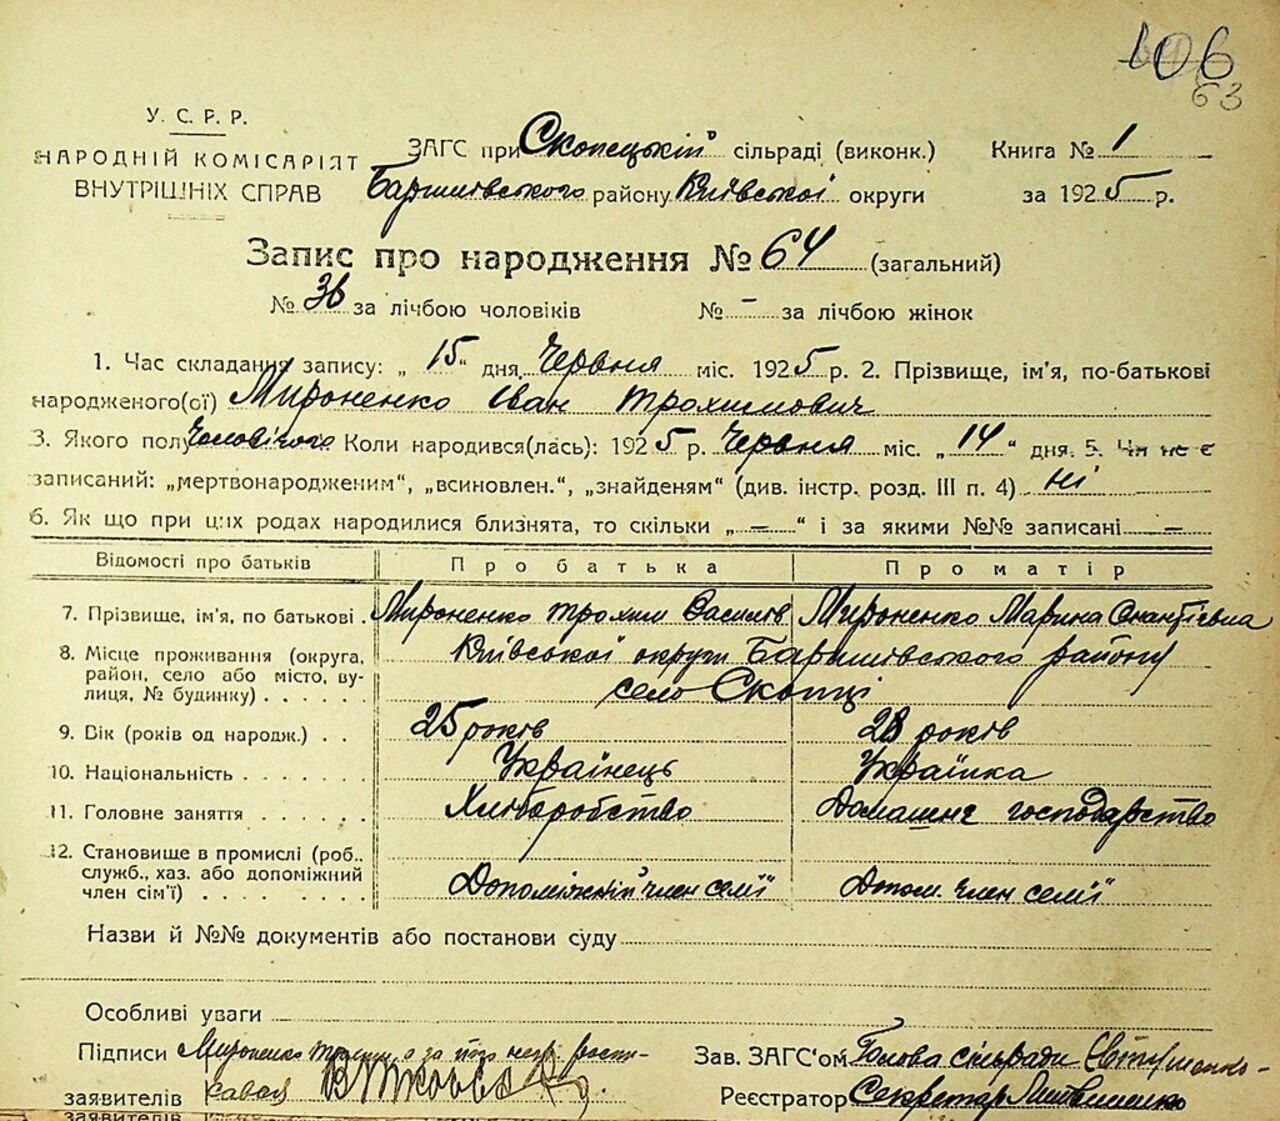 106
63
У. С. Р. Р.
НАРОДНІЙ КОМІСАРІЯТ
ВНУТРІШНІХ СПРАВ
ЗАГС при Скопецькій сільраді (виконк.) Книга № 1
Баришівського району Київської округи за 1925 р.
Запис про народження № 64 (загальний)
№ 36 за лічбою чоловіків № – за лічбою жінок
1. Час складання запису: „ 15 “ дня Червня міс. 1925 р. 2. Прізвище, ім'я, по-батькові
народженого(ої) Мироненко Іван Трохимович
3. Якого полу Чоловічого Коли народився(лась): 1925 р. Червня міс. „ 14 “ дня. 5. Чи не є
записаний: „мертвонародженим“, „всиновлен.“, „знайденям“ (див. інстр. розд. III п. 4) ні
6. Як що при цих родах народилися близнята, то скільки „ — “ і за якими №№ записані —
Відомості про батьків Про батька Про матір
7. Прізвище, ім'я, по батькові . Мироненко Трохим Василів Мироненко Марина
8. Місце проживання (округа, Київської округи Баришівського району
район, село або місто, ву-
лиця, № будинку) . . . . . . село Скопці
9. Вік (років од народж.) . . 25 років 28 років
10. Національність . . . . . . . Українець Українка
11. Головне заняття . . . . . . Хліборобство Домашнє господарство
12. Становище в промислі (роб.,
служб., хаз. або допоміжний
член сім'ї) . . . . . . . . Допоміжний член семії Допом. член семії
Назви й №№ документів або постанови суду
Особливі уваги
Підписи Мироненко а за його негр. роспи- Зав. ЗАГС'ом Голова сільради
заявителів Реєстратор Секретар
заявителів